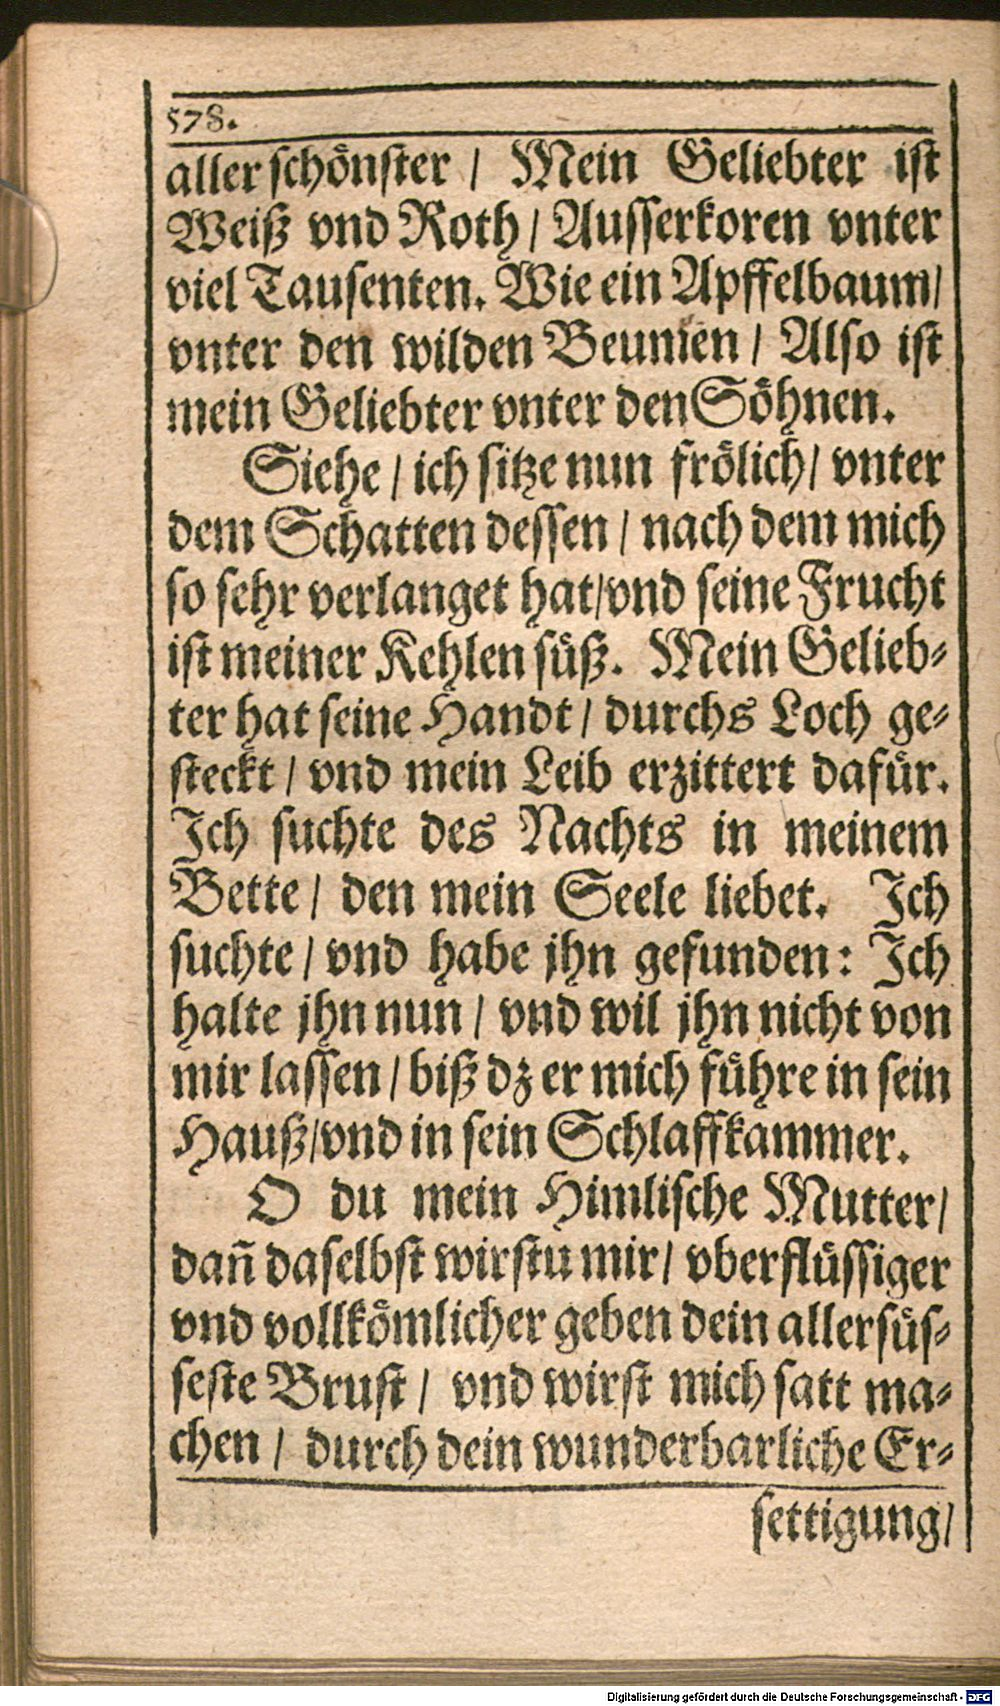 578.
aller schönster / Mein Geliebter ist
Weiß vnd Roth / Ausserkoren vnter
viel Tausenten. Wie ein Apffelbaum /
vnter den wilden Beumen / Also ist
mein Geliebter vnter den Söhnen.
Siehe / ich sitze nun frölich / vnter
dem Schatten dessen / nach dem mich
so sehr verlanget hat / vnd seine Frucht
ist meiner Kehlen süß. Mein Gelieb-
ter hat seine Handt / durchs Loch ge-
steckt / vnd mein Leib erzittert dafür.
Ich suchte des Nachts in meinem
Bette / den mein Seele liebet. Ich
suchte / vnd habe jhn gefunden: Ich
halte jhn nun / vnd wil jhn nicht von
mir lassen / biß dz er mich führe in sein
Hauß / vnd in sein Schlaffkammer.
O du mein Himlische Mutter /
dañ daselbst wirstu mir / vberflüssiger
vnd vollkömlicher geben dein allersüs-
seste Brust / vnd wirst mich satt ma-
chen / durch dein wunderbarliche Er-
settigung /
Digitalisierung gefördert durch die Deutsche Forschungsgemeinschaft - DFG